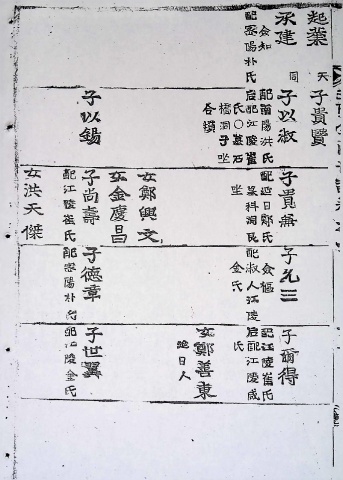 起業
承建
僉知
配密陽朴氏
天
子貴賢
同
子以淑
配南陽洪氏
后配江陵崔
氏〇墓石
橋洞子坐
各墳
子以錫
子貴無
配延日鄭氏
墓科洞艮
坐
女鄭興文
女金慶昌
子尚壽
配江陵崔氏
女洪天傑
子允三
僉樞
配淑人江陵
金氏
子德章
配密陽朴氏
子爾得
配江陵崔氏
后配江陵咸
氏
女鄭善東
延日人
子世翼
配江陵金氏